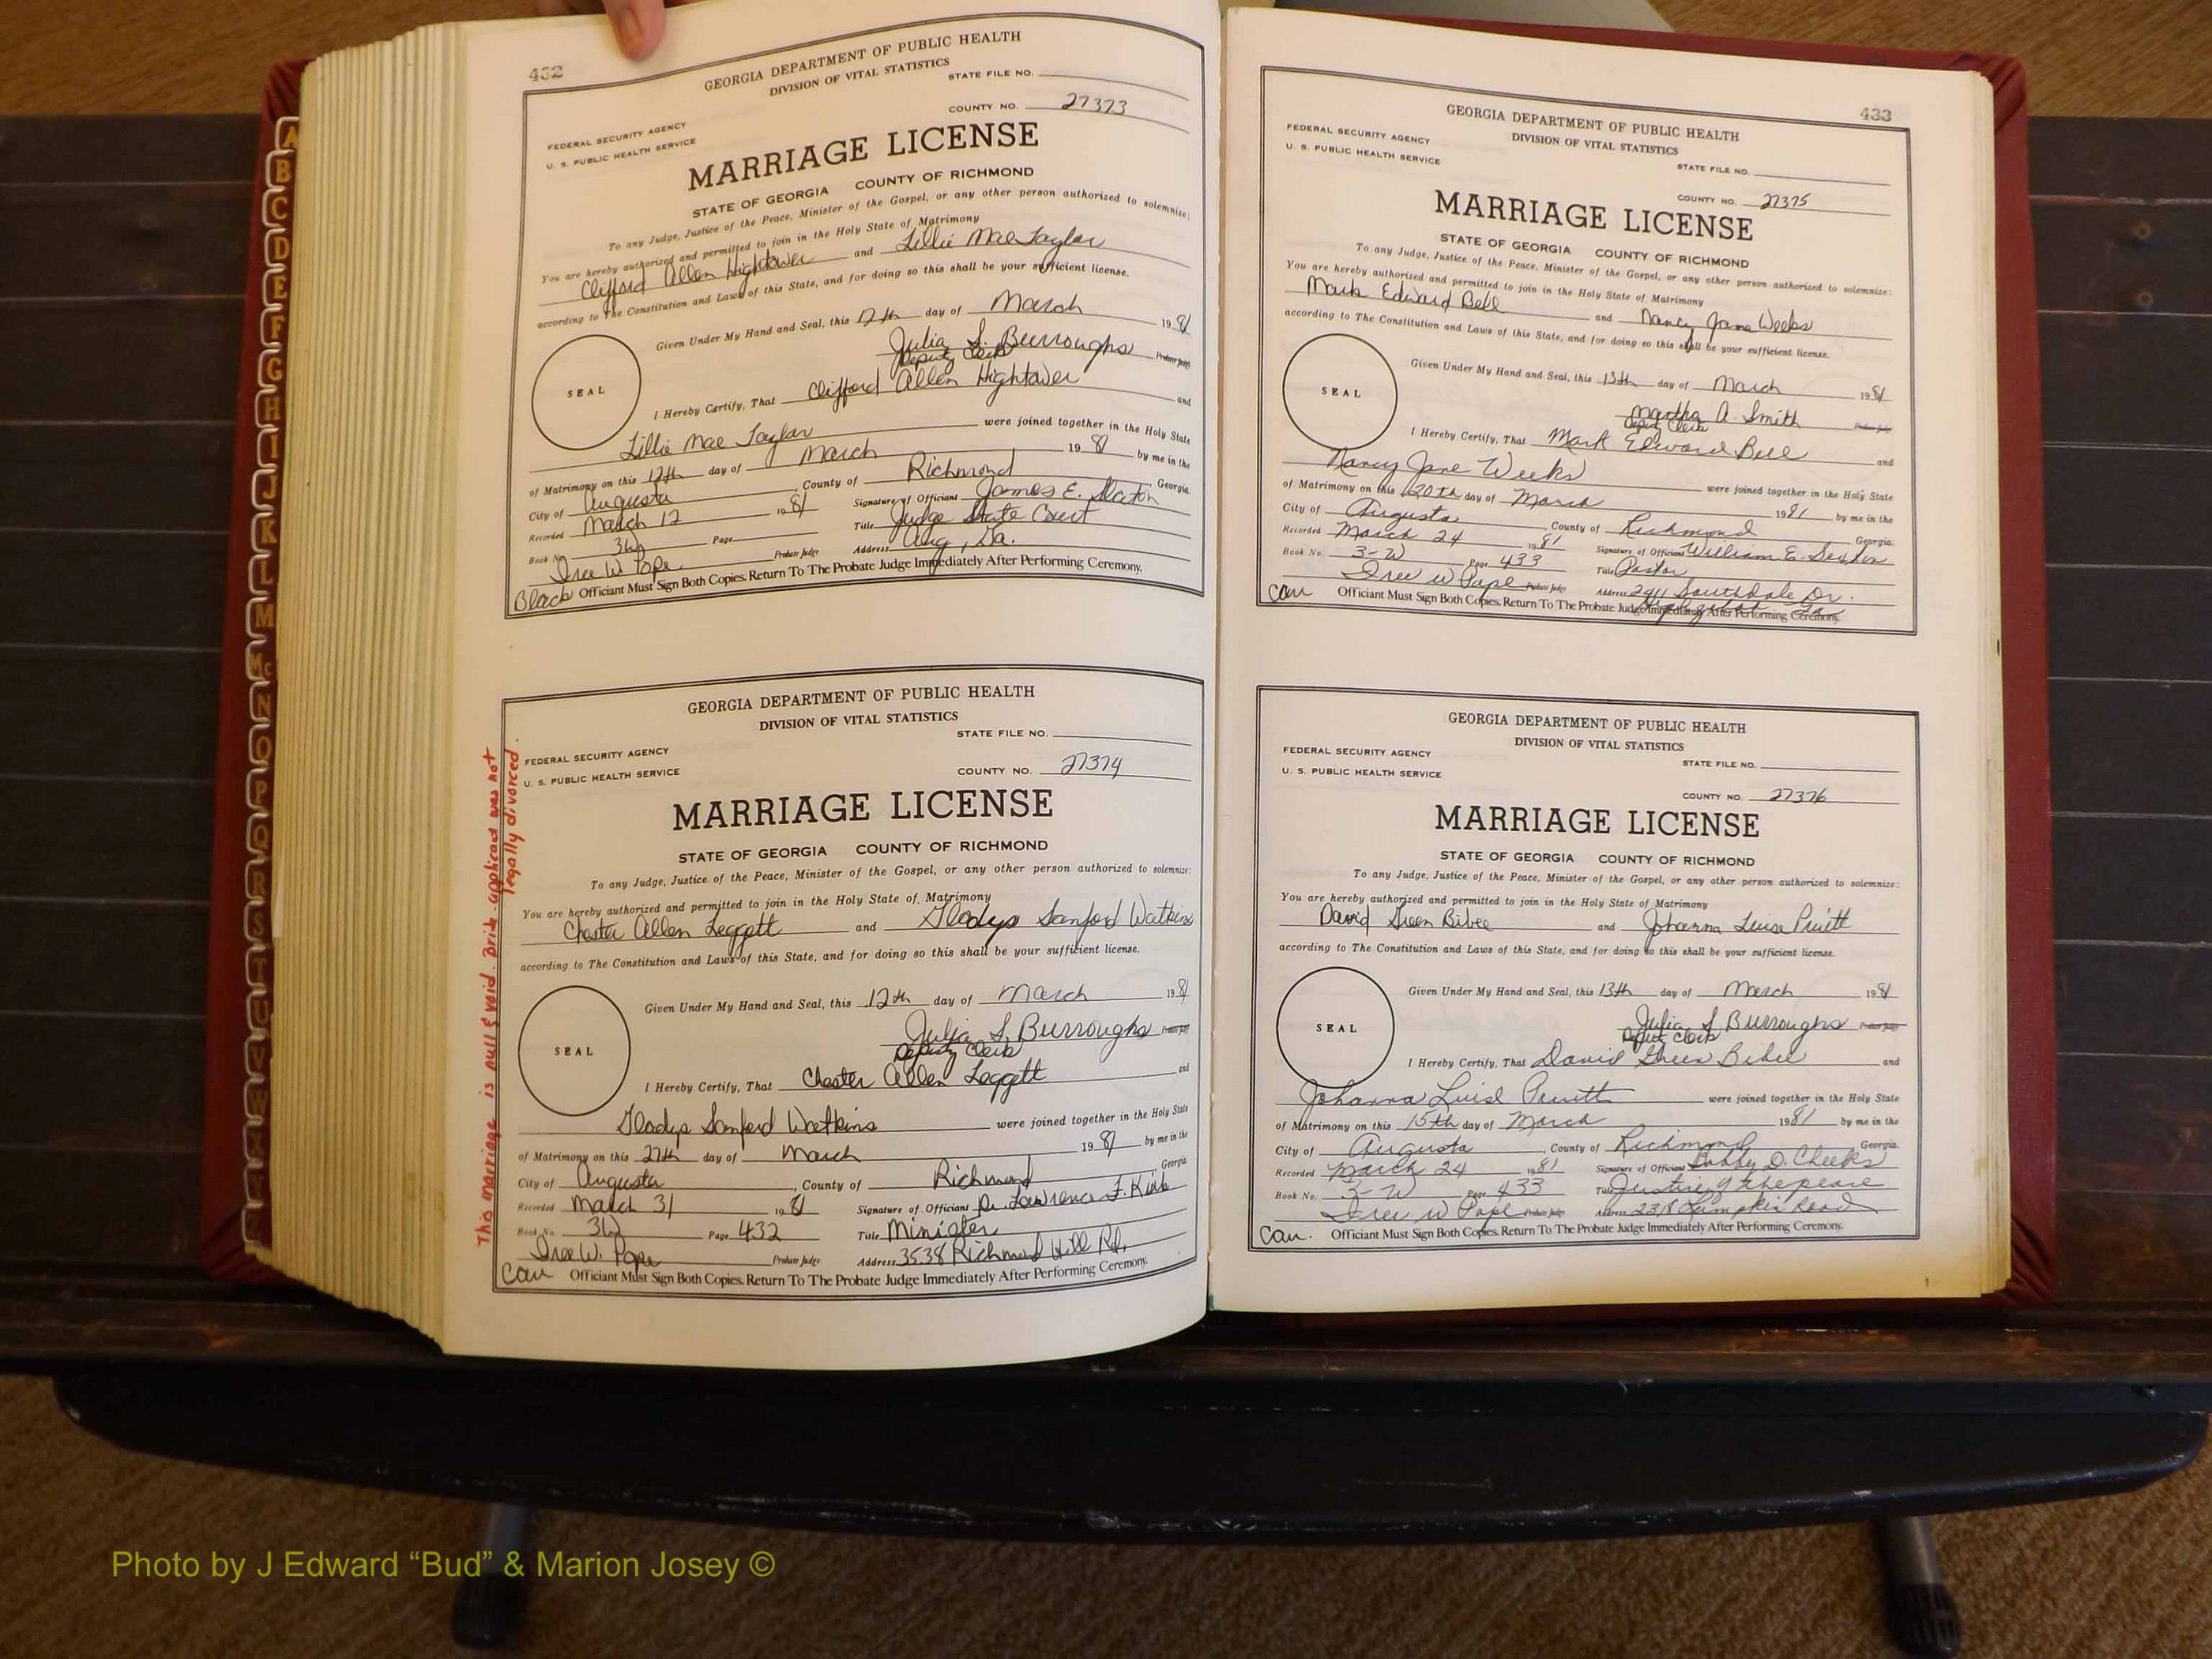 432
GEORGIA DEPARTMENT OF PUBLIC HEALTH
DIVISION OF VITAL STATISTICS
STATE FILE NO.
COUNTY NO. 27373
FEDERAL SECURITY AGENCY
U. S. PUBLIC HEALTH SERVICE
MARRIAGE LICENSE
STATE OF GEORGIA COUNTY OF RICHMOND
To any Judge, Justice of the Peace, Minister of the Gospel, or any other person authorized to solemnize:
You are hereby authorized and permitted to join in the Holy State of Matrimony
Clifford Allen Hightower and Lillie Mae Taylor
according to The Constitution and Laws of this State, and for doing so this shall be your sufficient license.
Given Under My Hand and Seal, this 12th day of March 1981
Julia S. Burroughs Probate Judge
Deputy Clerk
SEAL
I Hereby Certify, That Clifford Allen Hightower and
Lillie Mae Taylor were joined together in the Holy State
of Matrimony on this 12th day of March 1981 by me in the
City of Augusta, County of Richmond, Georgia.
Recorded March 12 1981 Signature of Officiant James E. Slaton
Book No. 3W Page Title Judge State Court
Iree W. Pope Probate Judge Address Aug, Ga.
Black Officiant Must Sign Both Copies. Return To The Probate Judge Immediately After Performing Ceremony.
This marriage is null & void. Bride-applicant was not
legally divorced.
GEORGIA DEPARTMENT OF PUBLIC HEALTH
DIVISION OF VITAL STATISTICS
STATE FILE NO.
FEDERAL SECURITY AGENCY
U. S. PUBLIC HEALTH SERVICE
COUNTY NO. 27374
MARRIAGE LICENSE
STATE OF GEORGIA COUNTY OF RICHMOND
To any Judge, Justice of the Peace, Minister of the Gospel, or any other person authorized to solemnize:
You are hereby authorized and permitted to join in the Holy State of Matrimony
Chester Allen Leggett and Gladys Sanford Watkins
according to The Constitution and Laws of this State, and for doing so this shall be your sufficient license.
Given Under My Hand and Seal, this 12th day of March 1981
Julia S. Burroughs Probate Judge
Deputy Clerk
SEAL
I Hereby Certify, That Chester Allen Leggett and
Gladys Sanford Watkins were joined together in the Holy State
of Matrimony on this 27th day of March 1981 by me in the
City of Augusta, County of Richmond, Georgia
Recorded March 31 1981 Signature of Officiant Dr. Lawrence F. Kirk
Book No. 3W Page 432 Title Minister
Iree W. Pope Probate Judge Address 3538 Richmond Hill Rd.
Cau Officiant Must Sign Both Copies. Return To The Probate Judge Immediately After Performing Ceremony.
433
GEORGIA DEPARTMENT OF PUBLIC HEALTH
DIVISION OF VITAL STATISTICS
FEDERAL SECURITY AGENCY
U. S. PUBLIC HEALTH SERVICE
STATE FILE NO.
COUNTY NO. 27375
MARRIAGE LICENSE
STATE OF GEORGIA COUNTY OF RICHMOND
To any Judge, Justice of the Peace, Minister of the Gospel, or any other person authorized to solemnize:
You are hereby authorized and permitted to join in the Holy State of Matrimony
Mark Edward Bell and Nancy Jane Weeks
according to The Constitution and Laws of this State, and for doing so this shall be your sufficient license.
Given Under My Hand and Seal, this 13th day of March 1981
Martha A. Smith Probate Judge
Deputy Clerk
SEAL
I Hereby Certify, That Mark Edward Bell and
Nancy Jane Weeks were joined together in the Holy State
of Matrimony on this 20th day of March 1981 by me in the
City of Augusta, County of Richmond Georgia.
Recorded March 24 1981 Signature of Officiant William E.
Book No. 3-W Page 433 Title Pastor
Iree W Pope Probate Judge Address 2411 Southdale Dr.
Cau Officiant Must Sign Both Copies. Return To The Probate Judge Immediately After Performing Ceremony.
GEORGIA DEPARTMENT OF PUBLIC HEALTH
DIVISION OF VITAL STATISTICS
FEDERAL SECURITY AGENCY
U. S. PUBLIC HEALTH SERVICE
STATE FILE NO.
COUNTY NO. 27376
MARRIAGE LICENSE
STATE OF GEORGIA COUNTY OF RICHMOND
To any Judge, Justice of the Peace, Minister of the Gospel, or any other person authorized to solemnize:
You are hereby authorized and permitted to join in the Holy State of Matrimony
David Green Bibee and Johanna Luise Pruitt
according to The Constitution and Laws of this State, and for doing so this shall be your sufficient license.
Given Under My Hand and Seal, this 13th day of March 1981
Julia S Burroughs Probate Judge
Deputy Clerk
SEAL
I Hereby Certify, That David Green Bibee and
Johanna Luise Pruitt were joined together in the Holy State
of Matrimony on this 15th day of March 1981 by me in the
City of Augusta, County of Richmond Georgia.
Recorded March 24 1981 Signature of Officiant Bobby D. Cheeks
Book No. 3-W Page 433 Title Justice of the peace
Iree W Pope Probate Judge Address 2318 Lumpkin Road
Cau. Officiant Must Sign Both Copies. Return To The Probate Judge Immediately After Performing Ceremony.
A
B
C
D
E
F
G
H
I
J
K
L
M
Mc
N
O
P
Q
R
S
T
U
V
W
X
Y
Z
Photo by J Edward “Bud” & Marion Josey ©